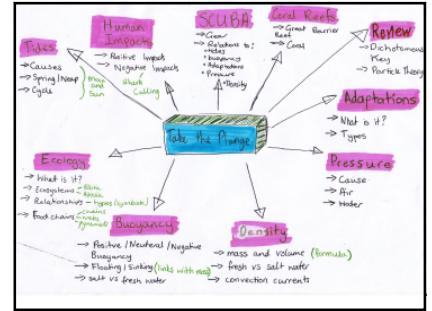 Tides
→ Causes
→ Spring/Neap
→ Cycle
Moon
and
Sun
Human
Impacts
→ Positive Impacts
→ Negative Impacts
Shark
Culling
SCUBA
→ Gear
→ Relations to:
• tides
• buoyancy
• Adaptations
• Pressure
• Density
Coral Reefs
→ Great Barrier
Reef
→ Coral
Review
→ Dichotomous
Key
→ Particle Theory
Adaptations
→ What is it?
→ Types
Take the Plunge
Pressure
→ Cause
→ Air
→ Water
Ecology
→ What is it?
→ Ecosystems
→ Relationships → types (symbiotic)
→ Food chains
chains
webs
pyramids
Buoyancy
→ Positive / Neutral / Negative
Buoyancy
→ Floating / Sinking (links with mass)
→ salt vs fresh water
Density
→ mass and volume (formula)
→ fresh vs salt water
→ convection currents